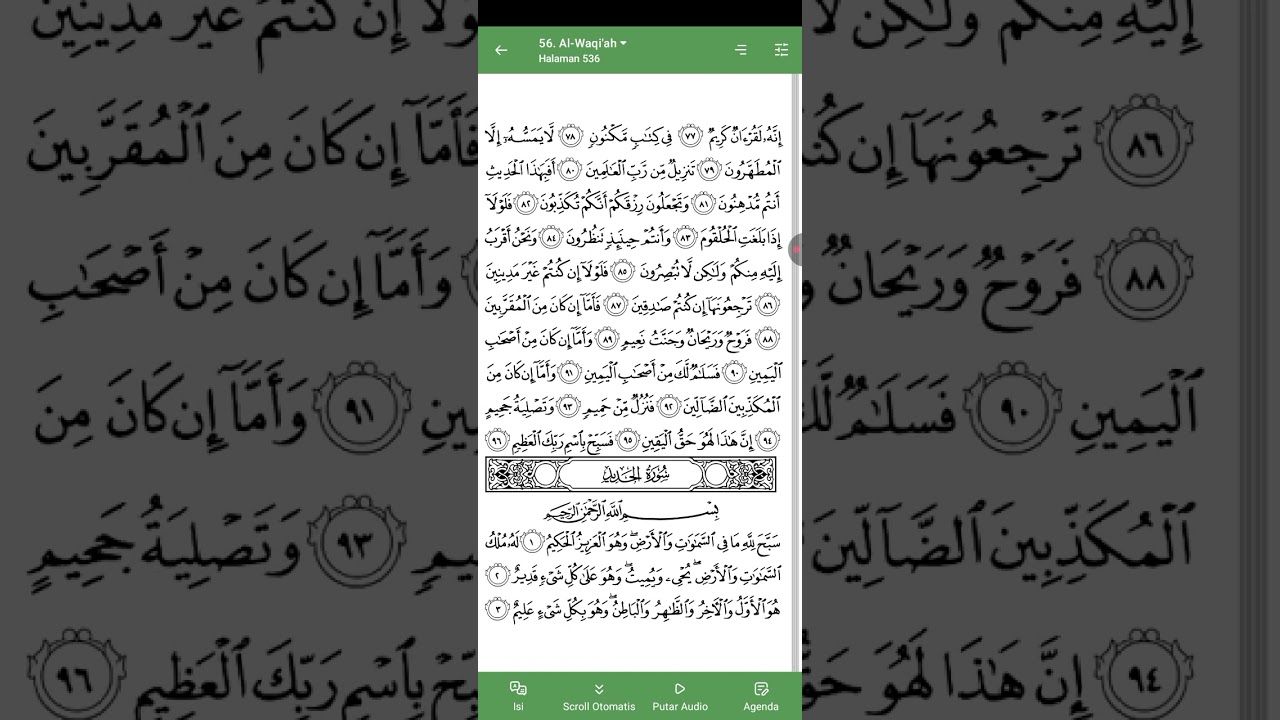 56. Al-Waqi'ah
Halaman 536
إِنَّهُۥ لَقُرْءَانٌ كَرِيمٌ ٧٧ فِى كِتَٰبٍ مَّكْنُونٍ ٧٨ لَّا يَمَسُّهُۥٓ إِلَّا
ٱلْمُطَهَّرُونَ ٧٩ تَنزِيلٌ مِّن رَّبِّ ٱلْعَٰلَمِينَ ٨٠ أَفَبِهَٰذَا ٱلْحَدِيثِ
أَنتُم مُّدْهِنُونَ ٨١ وَتَجْعَلُونَ رِزْقَكُمْ أَنَّكُمْ تُكَذِّبُونَ ٨٢ فَلَوْلَآ
إِذَا بَلَغَتِ ٱلْحُلْقُومَ ٨٣ وَأَنتُمْ حِينَئِذٍ تَنظُرُونَ ٨٤ وَنَحْنُ أَقْرَبُ
إِلَيْهِ مِنكُمْ وَلَٰكِن لَّا تُبْصِرُونَ ٨٥ فَلَوْلَآ إِن كُنتُمْ غَيْرَ مَدِينِينَ
٨٦ تَرْجِعُونَهَآ إِن كُنتُمْ صَٰدِقِينَ ٨٧ فَأَمَّآ إِن كَانَ مِنَ ٱلْمُقَرَّبِينَ
٨٨ فَرَوْحٌ وَرَيْحَانٌ وَجَنَّتُ نَعِيمٍ ٨٩ وَأَمَّآ إِن كَانَ مِنْ أَصْحَٰبِ
ٱلْيَمِينِ ٩٠ فَسَلَٰمٌ لَّكَ مِنْ أَصْحَٰبِ ٱلْيَمِينِ ٩١ وَأَمَّآ إِن كَانَ مِنَ
ٱلْمُكَذِّبِينَ ٱلضَّآلِّينَ ٩٢ فَنُزُلٌ مِّنْ حَمِيمٍ ٩٣ وَتَصْلِيَةُ جَحِيمٍ
٩٤ إِنَّ هَٰذَا لَهُوَ حَقُّ ٱلْيَقِينِ ٩٥ فَسَبِّحْ بِٱسْمِ رَبِّكَ ٱلْعَظِيمِ ٩٦
سُورَةُ الحَدِيدِ
بِسْمِ ٱللَّهِ ٱلرَّحْمَٰنِ ٱلرَّحِيمِ
سَبَّحَ لِلَّهِ مَا فِى ٱلسَّمَٰوَٰتِ وَٱلْأَرْضِ ۖ وَهُوَ ٱلْعَزِيزُ ٱلْحَكِيمُ ١ لَهُۥ مُلْكُ
ٱلسَّمَٰوَٰتِ وَٱلْأَرْضِ ۖ يُحْىِۦ وَيُمِيتُ ۖ وَهُوَ عَلَىٰ كُلِّ شَىْءٍ قَدِيرٌ ٢
هُوَ ٱلْأَوَّلُ وَٱلْءَاخِرُ وَٱلظَّٰهِرُ وَٱلْبَاطِنُ ۖ وَهُوَ بِكُلِّ شَىْءٍ عَلِيمٌ ٣
Isi
Scroll Otomatis
Putar Audio
Agenda